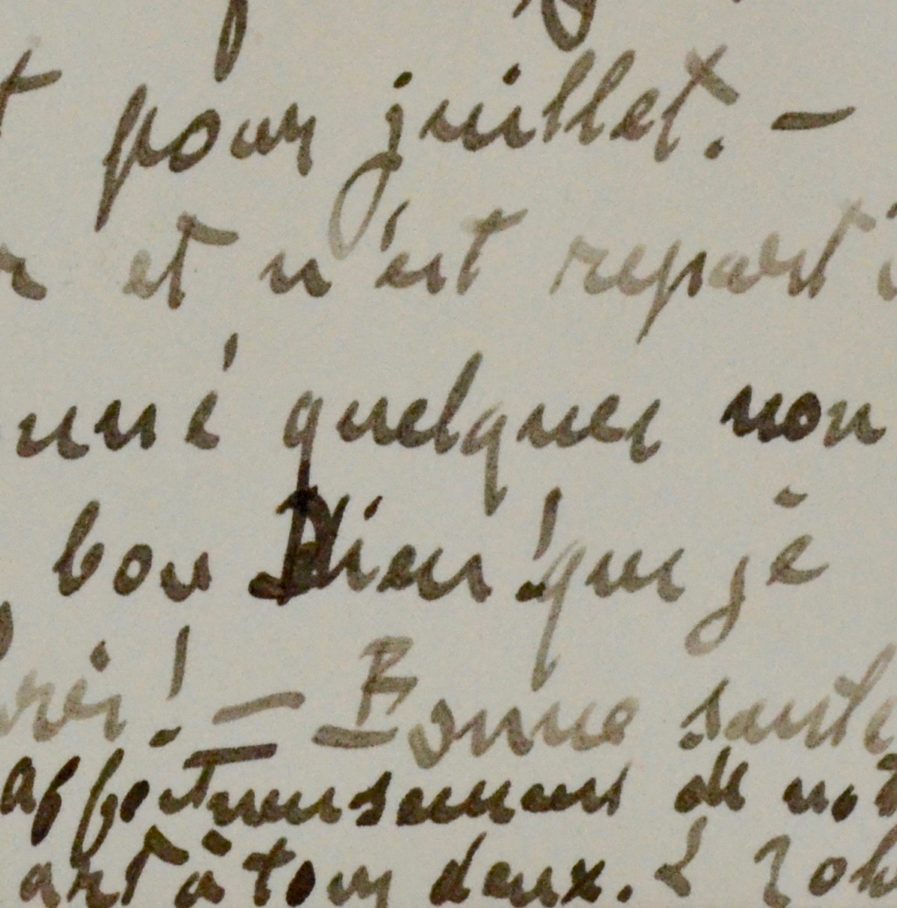 pour juillet. —
et n'est reparti
quelques non
bon Dieu ! que je
! — Bonne santé
affectueusement de not
art à tous deux.